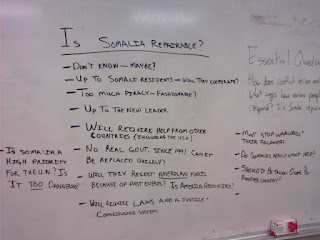 Is Somalia Repairable?
- Don't know - maybe?
- Up to Somali residents - will they cooperate?
- Too much piracy - fashionable?
- Up to the new leader
- Will require help from other
countries (including the USA)
- No real govt. since 1991 can it
be replaced quickly?
- Will they resist American forces
because of past events? Is America
- Will require laws and a justice/
consequence system
- Is Somalia a
high priority
for the U.N.? Is
it too dangerous?
Essential Question
How does conflict
What ways
respond? Is
- Must stop warlords &
their followers
- Do Somalis want help?
- Should it be taken over by
another country?